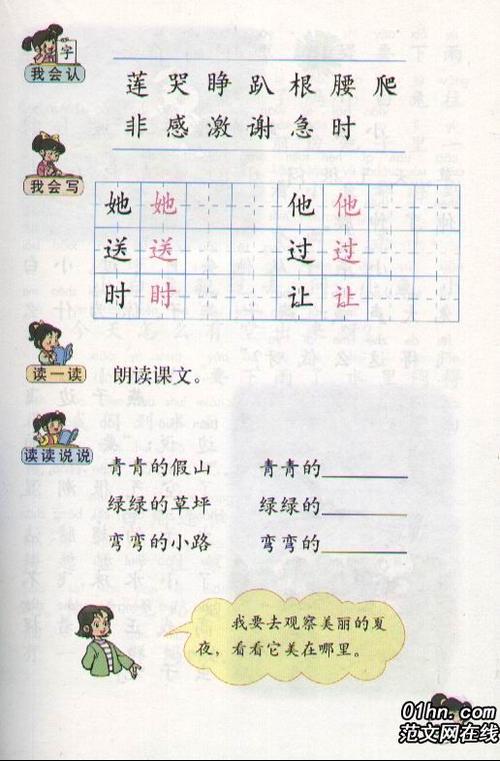 字
我会认
莲 哭 睁 趴 根 腰 爬
非 感 激 谢 急 时
我会写
她 她 他 他
送 送 过 过
时 时 让 让
读一读
朗读课文。
读读说说
青青的假山 青青的
绿绿的草坪 绿绿的
弯弯的小路 弯弯的
我要去观察美丽的夏
夜，看看它美在哪里。
01hn.com
范文网在线